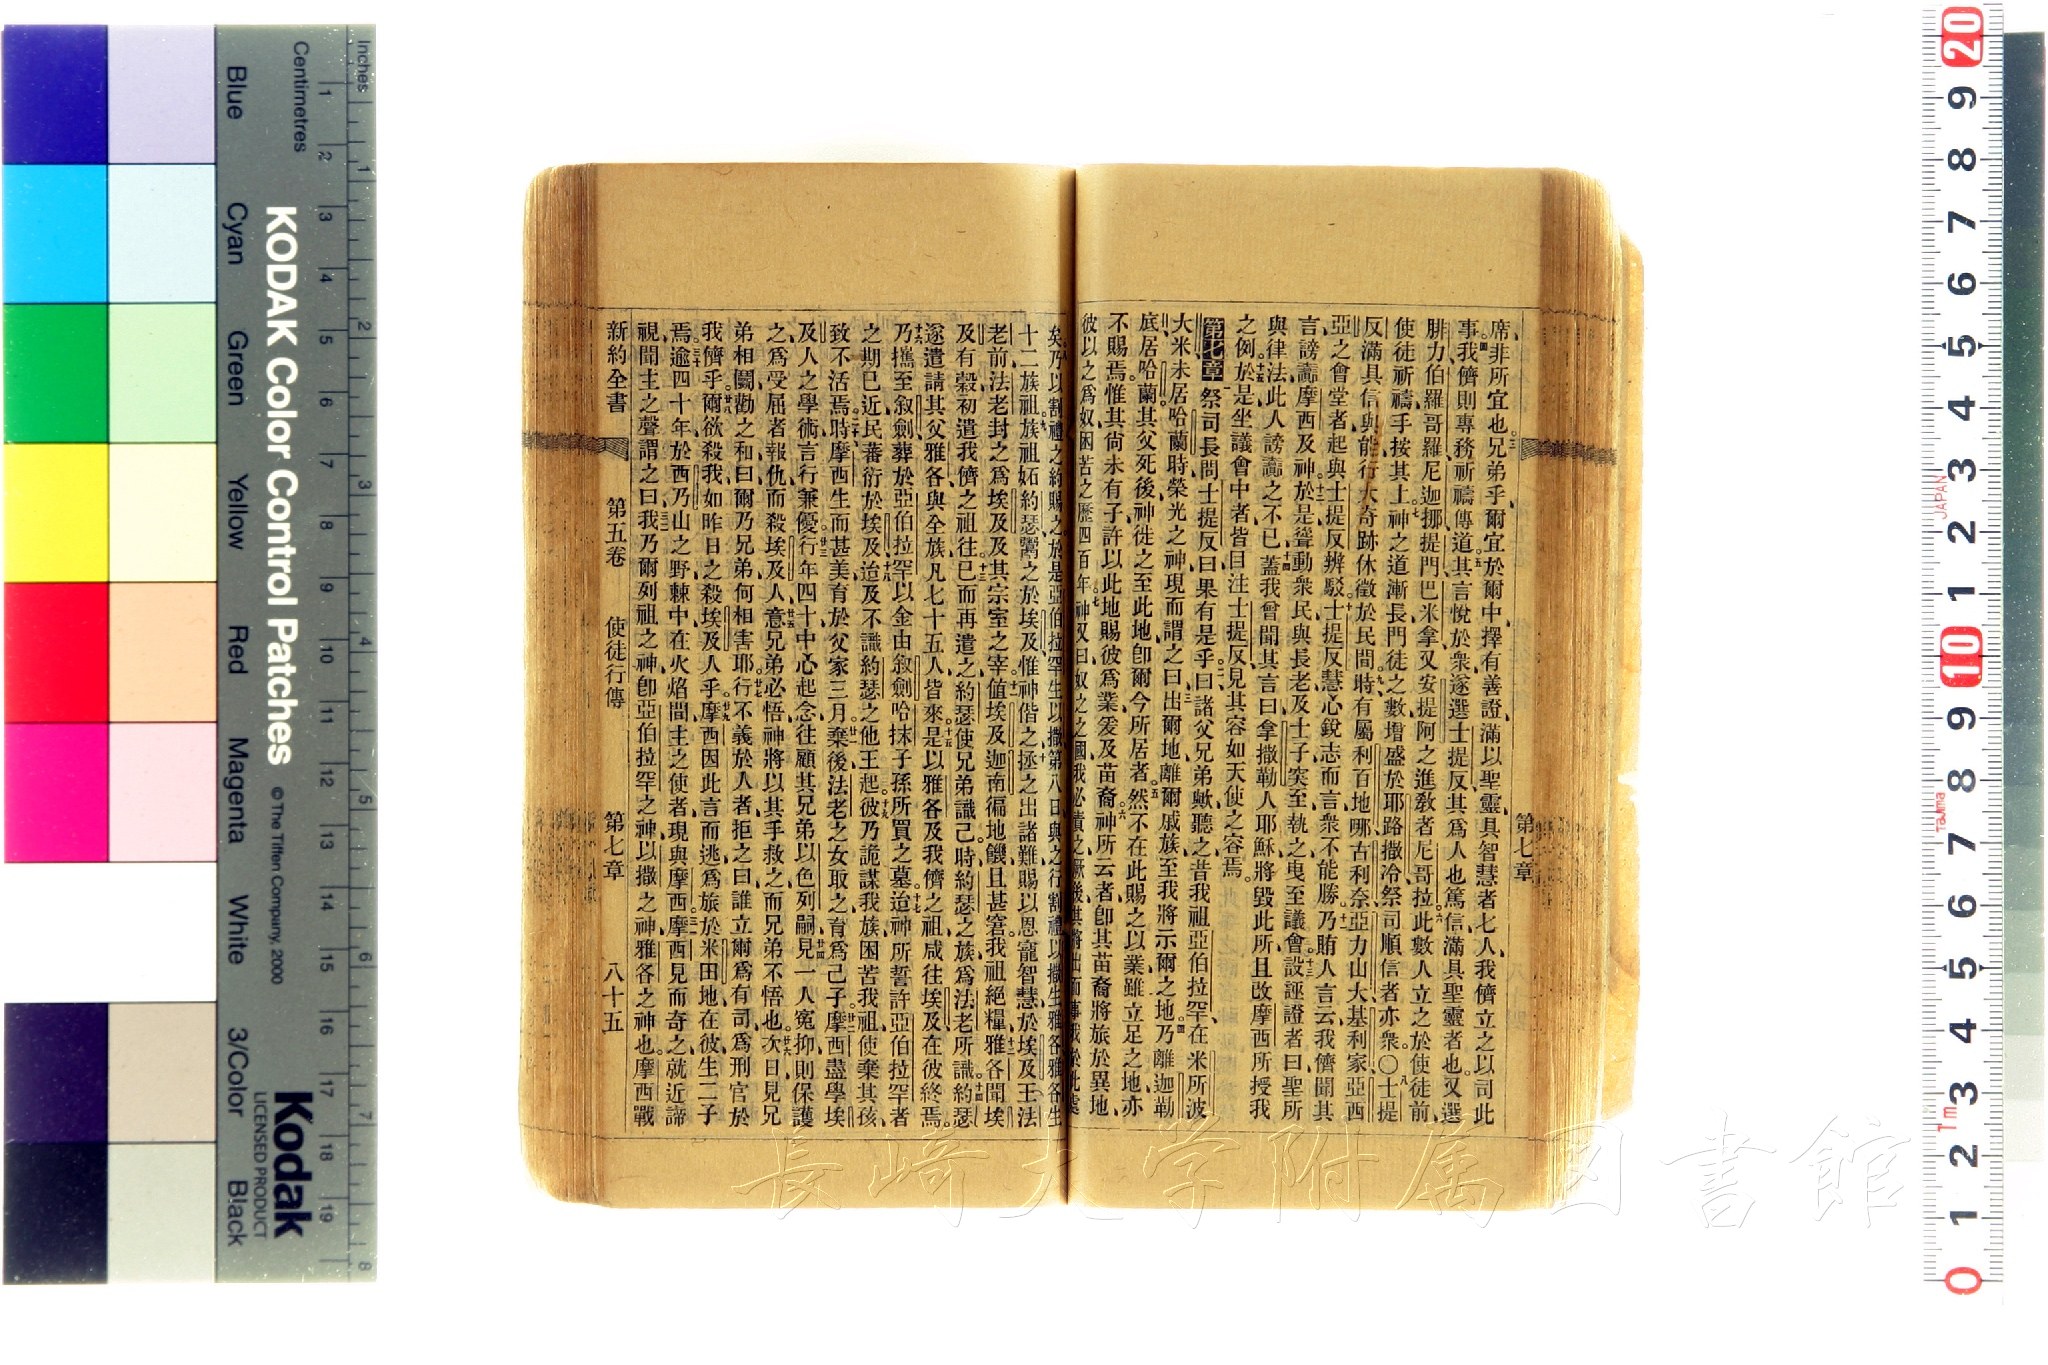 第七章
席非所宜也兄弟乎爾宜於爾中擇有善證滿以聖靈具智慧者七人我儕立之以司此
事我儕則專務祈禱傳道其言悅於衆遂選士提反其爲人也篤信滿具聖靈者也又選
腓力伯羅哥羅尼迦挪提門巴米拿又安提阿之進教者尼哥拉此數人立之於使徒前
使徒祈禱手按其上神之道漸長門徒之數增盛於耶路撒冷祭司順信者亦衆〇士提
反滿具信與能行大奇跡休徵於民間時有屬利百地哪古利奈亞力山大基利家亞西
亞之會堂者起與士提反辨駁士提反慧心銳志而言衆不能勝乃賄人言云我儕聞其
言謗讟摩西及神於是聳動衆民與長老及士子突至執之曳至議會設誣證者曰聖所
與律法此人謗讟之不已蓋我曾聞其言曰拿撒勒人耶穌將毀此所且改摩西所授我
之例於是坐議會中者皆目注士提反見其容如天使之容焉
第七章 祭司長問士提反曰果有是乎曰諸父兄弟歟聽之昔我祖亞伯拉罕在米所波
大米未居哈蘭時榮光之神現而謂之曰出爾地離爾戚族至我將示爾之地乃離迦勒
底居哈蘭其父死後神徙之至此地卽爾今所居者然不在此賜之以業雖立足之地亦
不賜焉惟其尙未有子許以此地賜彼爲業爰及苗裔神所云者卽其苗裔將旅於異地
彼以之爲奴困苦之歷四百年神又曰奴之之國我必責之厥後其將出而事我於此處
矣乃以割禮之約賜之於是亞伯拉罕生以撒第八日與之行割禮以撒生雅各雅各生
十二族祖族祖妬約瑟鬻之於埃及惟神偕之拯之出諸難賜以恩寵智慧於埃及王法
老前法老封之爲埃及及其宗室之宰値埃及迦南徧地饑且甚窘我祖絕糧雅各聞埃
及有穀初遣我儕之祖往已而再遣之約瑟使兄弟識己時約瑟之族爲法老所識約瑟
遂遣請其父雅各與全族凡七十五人皆來是以雅各及我儕之祖咸往埃及在彼終焉
乃攜至叙劍葬於亞伯拉罕以金由叙劍哈抹子孫所買之墓迨神所誓許亞伯拉罕者
之期已近民蕃衍於埃及迨及不識約瑟之他王起彼乃詭謀我族困苦我祖使棄其孩
致不活焉時摩西生而甚美育於父家三月棄後法老之女取之育爲己子摩西盡學埃
及人之學術言行兼優行年四十中心起念往顧其兄弟以色列嗣見一人寃抑則保護
之爲受屈者報仇而殺埃及人意兄弟必悟神將以其手救之而兄弟不悟也次日見兄
弟相鬭勸之和曰爾乃兄弟何相害耶行不義於人者拒之曰誰立爾爲有司爲刑官於
我儕乎爾欲殺我如昨日之殺埃及人乎摩西因此言而逃爲旅於米田地在彼生二子
焉逾四十年於西乃山之野棘中在火焰間主之使者現與摩西摩西見而奇之就近諦
視聞主之聲謂之曰我乃爾列祖之神卽亞伯拉罕之神以撒之神雅各之神也摩西戰
新約全書 第五卷 使徒行傳 第七章 八十五
長崎大学附属図書館
Inches
Centimetres
KODAK Color Control Patches
© The Tiffen Company, 2000
Kodak
LICENSED PRODUCT
Blue Cyan Green Yellow Red Magenta White 3/Color Black
1 2 3 4 5 6 7 8 9 10 11 12 13 14 15 16 17 18 19
1 2 3 4 5 6 7 8
20 9 8 7 6 5 4 3 2 1 10 9 8 7 6 5 4 3 2 1 0
JAPAN
Tajima
1m